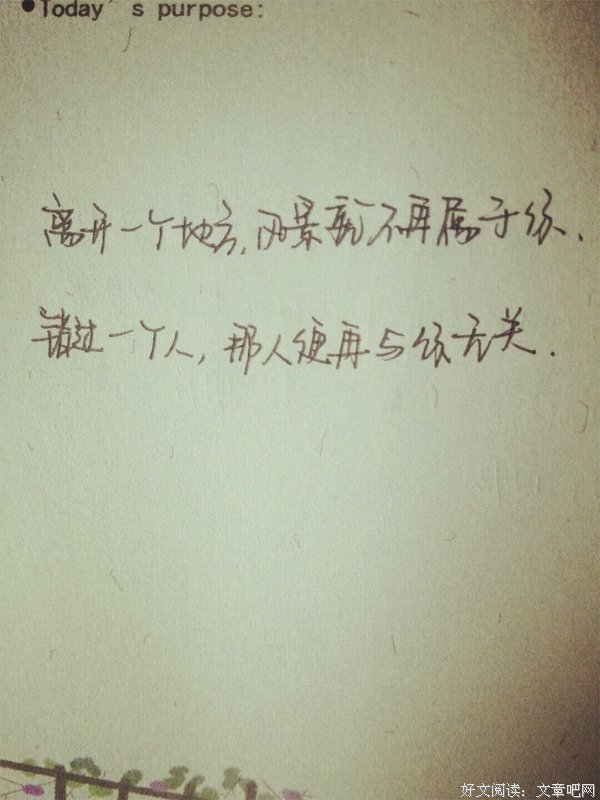 ●Today's purpose:
离开一个地方,风景就不再属于你.
错过一个人,那人便再与你无关.
好文阅读：文章吧网